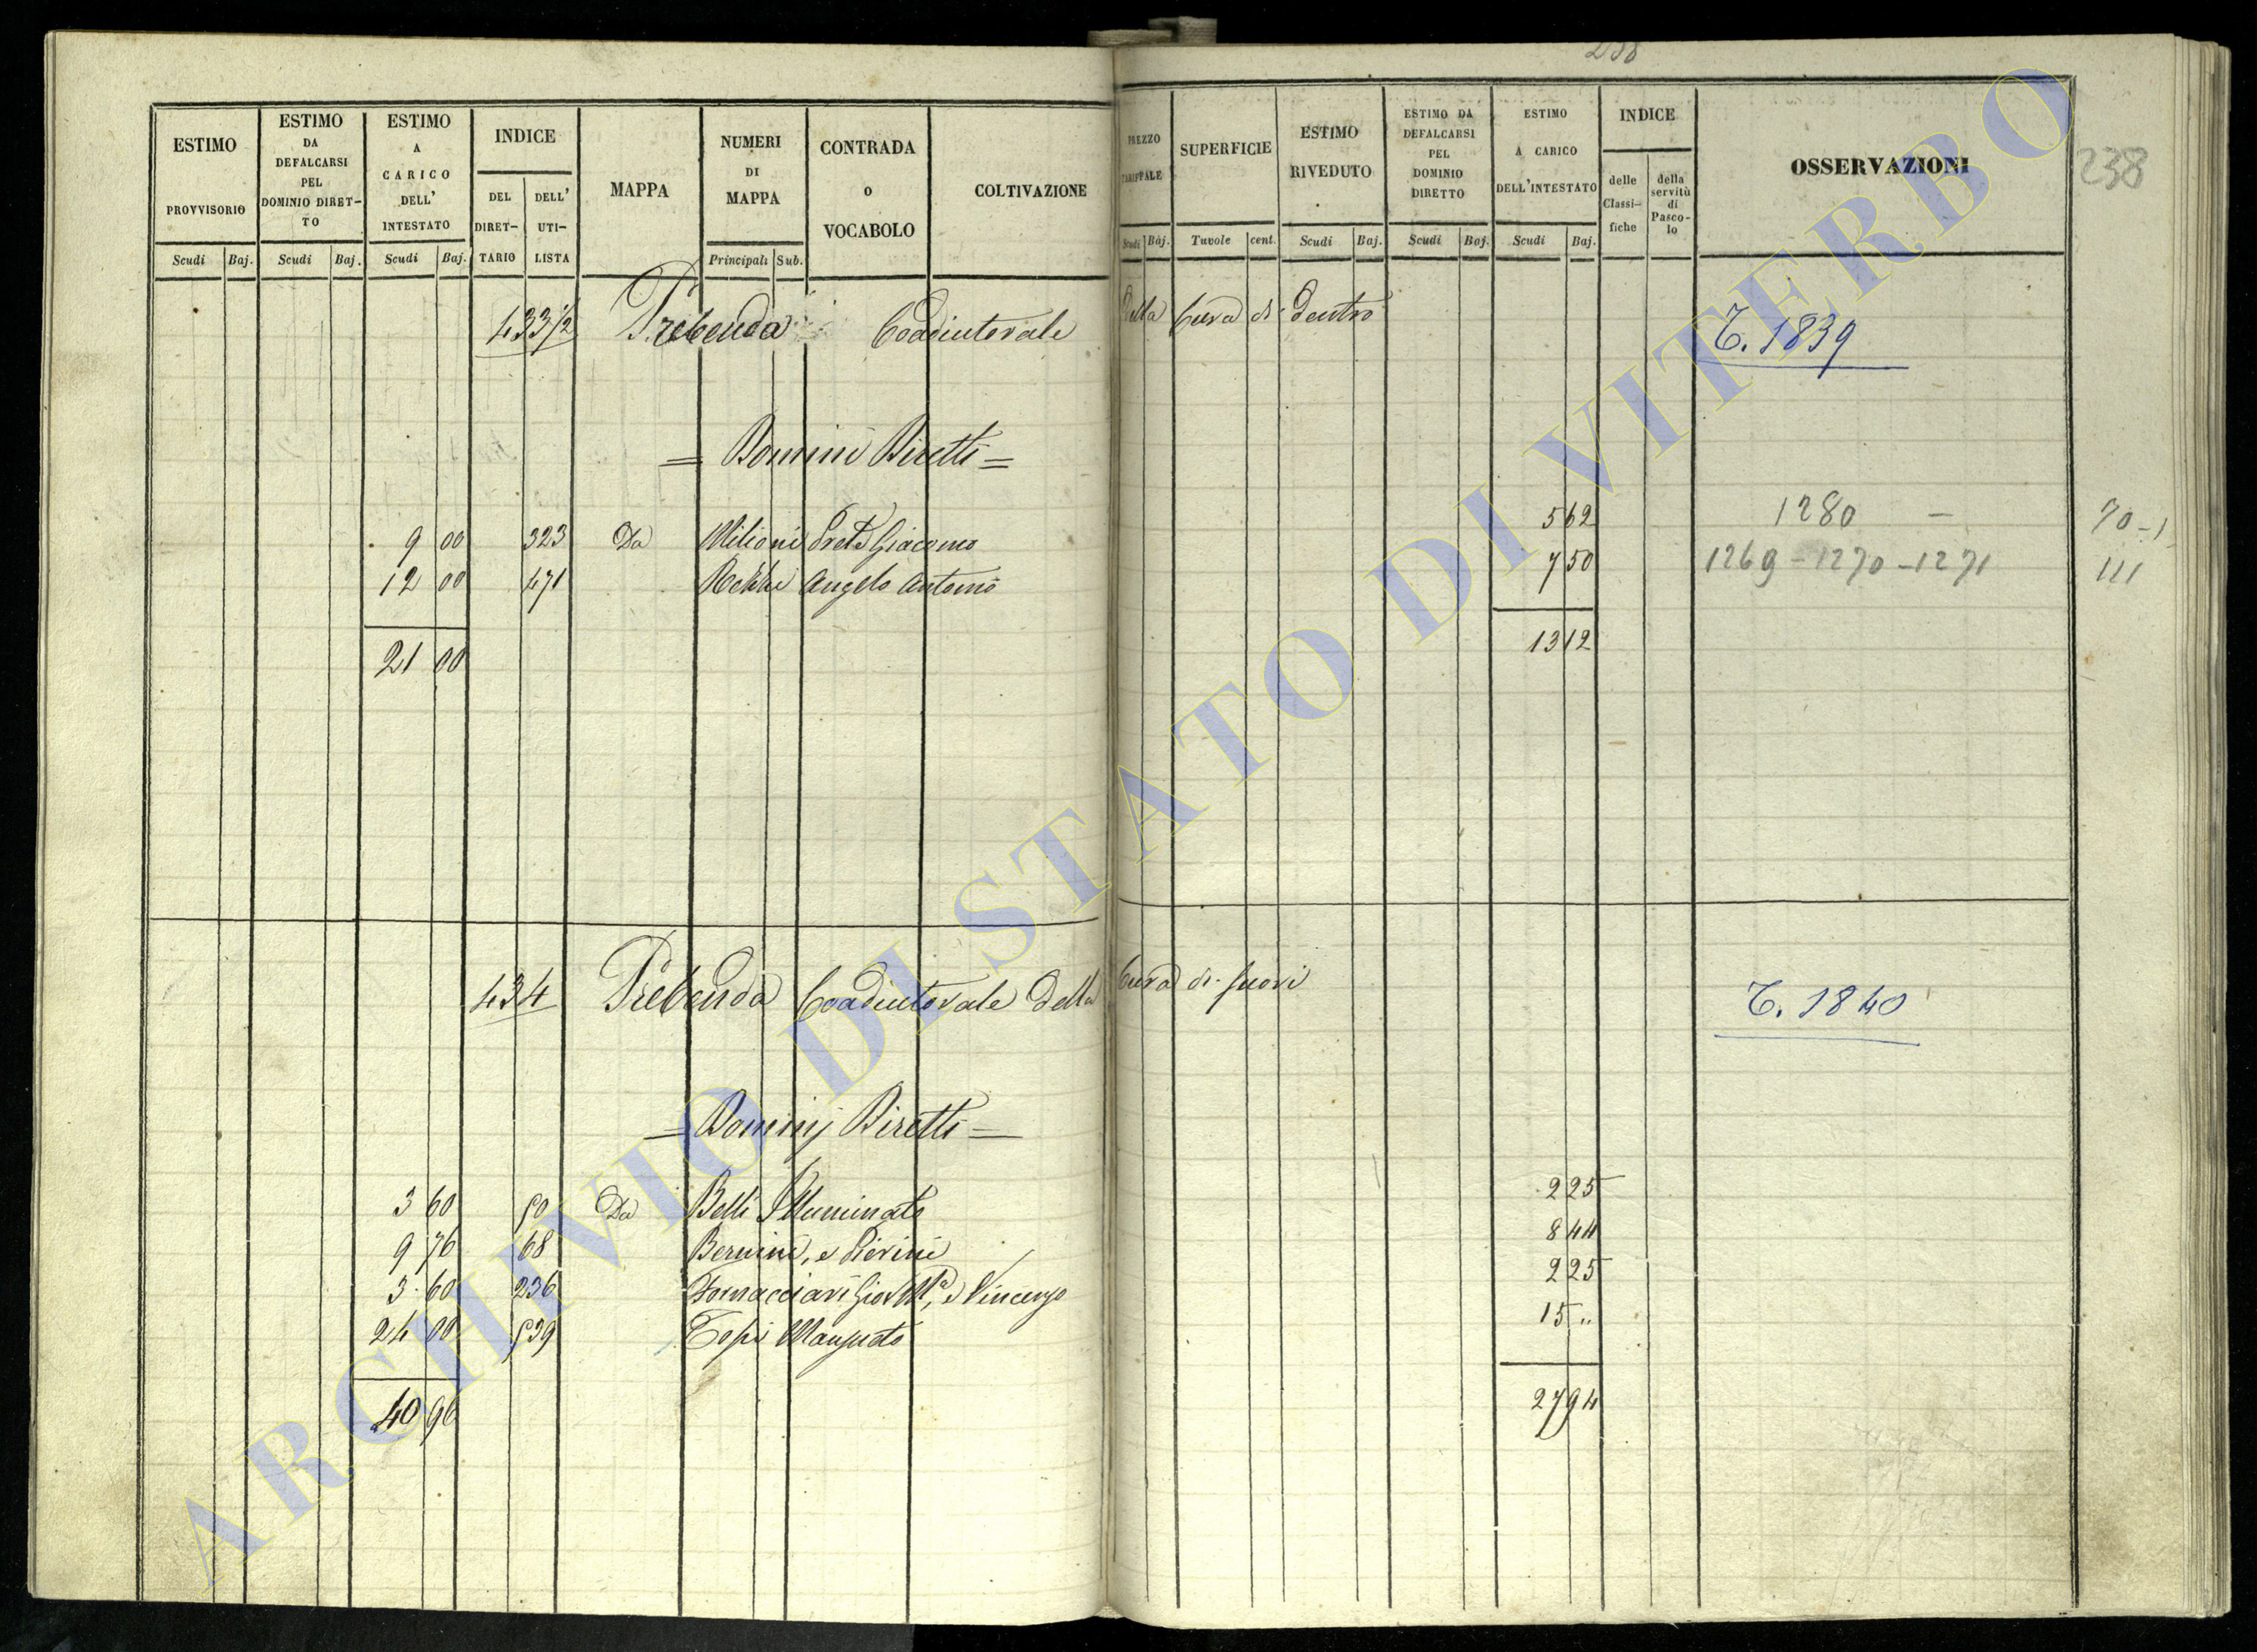 238
238
ESTIMO PROVVISORIO
ESTIMO DA DEFALCARSI PEL DOMINIO DIRET-TO
ESTIMO A CARICO DELL' INTESTATO
INDICE
DEL DIRET-TARIO
DELL' UTI-LISTA
MAPPA
NUMERI DI MAPPA
CONTRADA o VOCABOLO
COLTIVAZIONE
PREZZO TARIFFALE
SUPERFICIE
ESTIMO RIVEDUTO
ESTIMO DA DEFALCARSI PEL DOMINIO DIRETTO
ESTIMO A CARICO DELL'INTESTATO
INDICE
delle Classi-fiche
della servitù di Pasco-lo
OSSERVAZIONI
Scudi Baj. Scudi Baj. Scudi Baj. Principali Sub. Scudi Baj. Tavole cent. Scudi Baj. Scudi Baj. Scudi Baj.
433 1/2 Prebenda Coadiutorale Della Cura di dentro T. 1839
= Domini Diretti =
9 00 323 Da Milioni Prete Giacomo 5 62 1280 – 70-1
12 00 471 Angelo Antonio 7 50 1269-1270-1271 111
21 00 13 12
434 Prebenda Coadiutorale della Cura di fuori T. 1840
= Dominj Diretti =
3 60 50 Da Belli Illuminato 2 25
9 76 68 Bernini, e Pierini 8 44
3 60 236 Fornacciari Gio M.ª, e Vincenzo 2 25
24 00 539 Topi Mansueto 15 "
40 96 27 94
ARCHIVIO DI STATO DI VITERBO